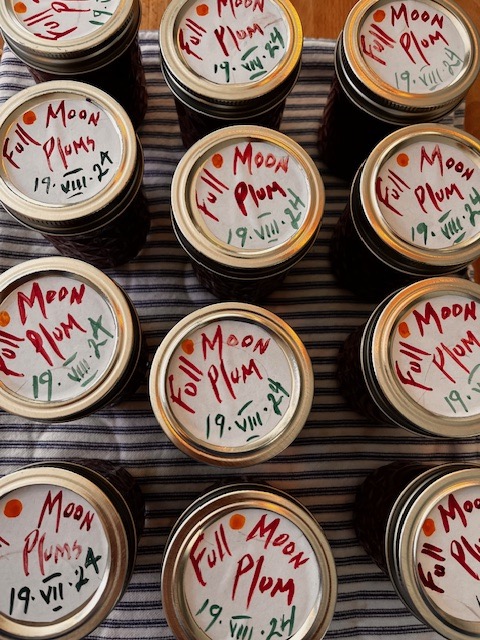 Full Moon
Plum
19·VIII·24
Full Moon
Plum
19·VIII·24
Full Moon
Plums
19·VIII·24
Full Moon
Plum
19·VIII·24
Full Moon
Plum
19·VIII·24
Full Moon
Plum
19·VIII·24
Full Moon
Plum
19·VIII·24
Full Moon
Plum
19·
Moon
Plums
19·VII·24
Full Moon
Plum
19·VIII·24
Full